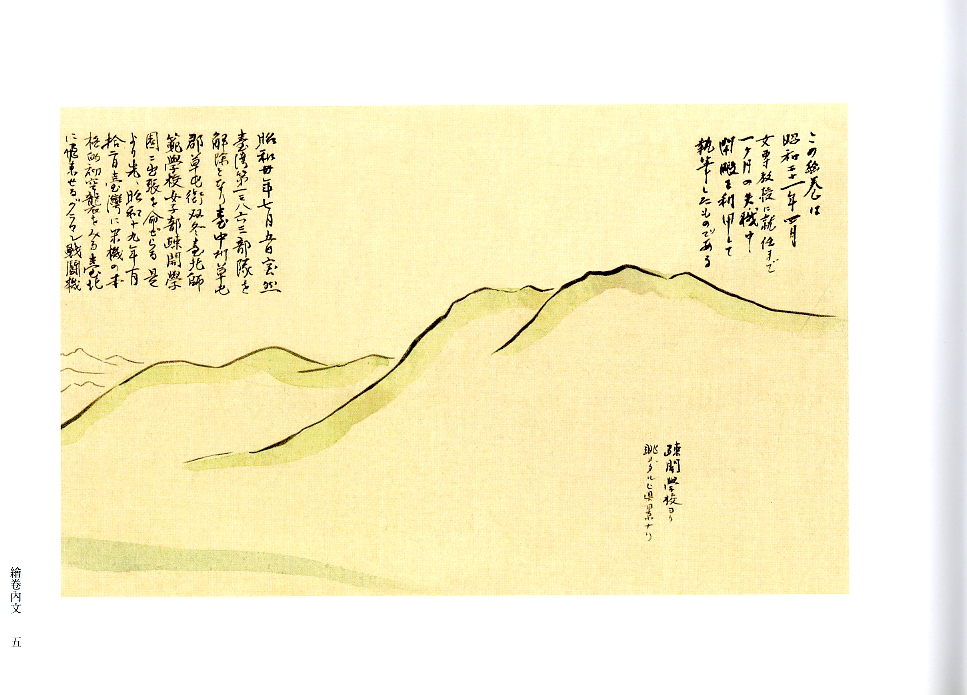 この絵巻は
昭和二十一年四月
女専教授に就任まで
一ケ月の失機中
閑暇を利用して
執筆したものである
昭和廿年七月五日突然
臺湾第一三八六三部隊を
解除となり臺中州草屯
郡草屯街双冬臺北師
範學校女子部疎開學
園ニ出張を命ぜらる 是
より先、昭和十九年十月
拾二日臺湾に来機の本
格的初空襲をみる臺北
に飛来せるグラマン戦闘機
疎開學校ヨリ
眺メタル山景ナリ
繪卷內文 五